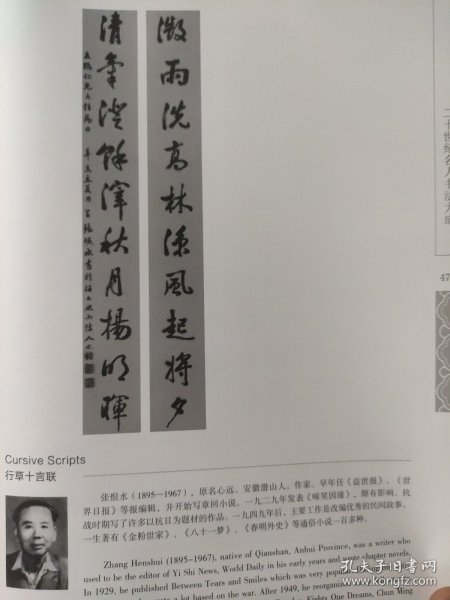 微雨洗高林涼風起將夕
清氣澄餘滓秋月揚明暉
二十世纪名人书法大成
47
Cursive Scripts
行草十言联
张恨水（1895—1967），原名心远。安徽潜山人。作家。早年任《益世报》、《世
界日报》等报编辑，并开始写章回小说。一九二九年发表《啼笑因缘》，颇有影响。抗
战时期写了许多以抗日为题材的作品。一九四九年后，主要工作是改编优秀的民间故事。
一生著有《金粉世家》、《八十一梦》、《春明外史》等通俗小说一百多种。
Zhang Henshui (1895-1967), native of Qianshan, Anhui Province, was a writer who
used to be the editor of Yi Shi News, World Daily in his early years and wrote chapter novels.
In 1929, he published Between Tears and Smiles which was very popular
a lot based on the war. After 1949, he reorganized
Eighty One Dreams, Chun Ming
孔夫子旧书网